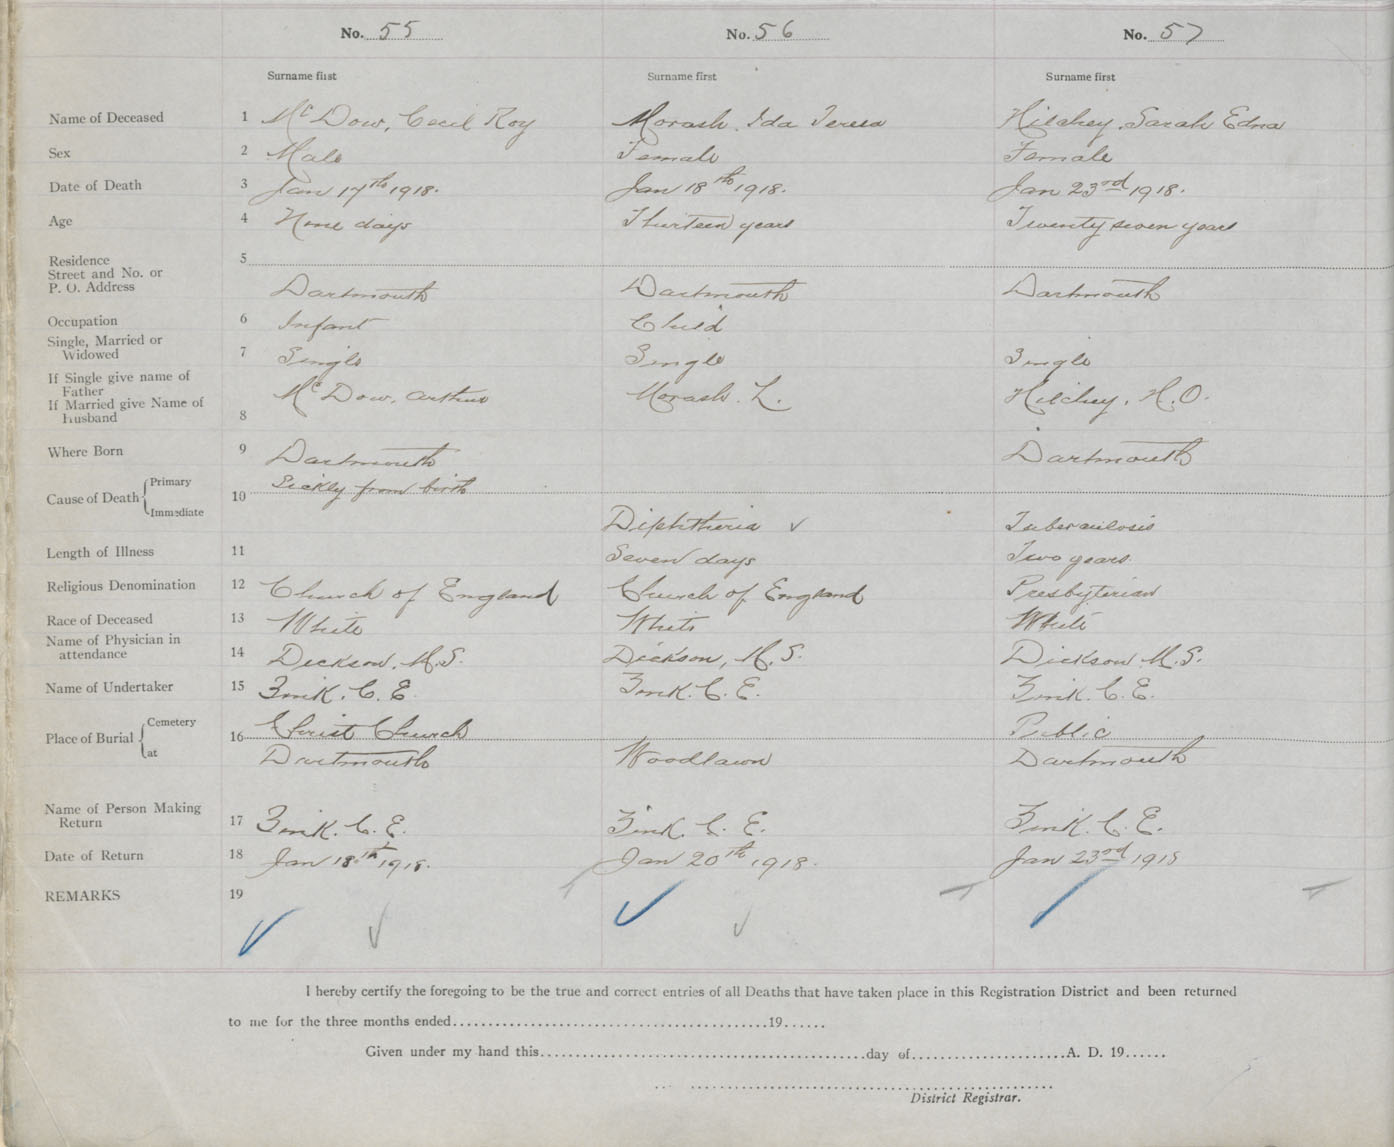 No. 55 No. 56 No. 57
Surname first Surname first Surname first
Name of Deceased 1 McDow, Cecil Roy Morash, Ida Teresa Hilchey, Sarah Edna
Sex 2 Male Female Female
Date of Death 3 Jan 17th 1918. Jan 18th 1918. Jan 23rd 1918.
Age 4 Nine days Thirteen years Twenty seven years
Residence 5
Street and No. or
P. O. Address Dartmouth Dartmouth Dartmouth
Occupation 6 Infant Child
Single, Married or
Widowed 7 Single Single Single
If Single give name of
Father McDow, Arthur Morash. L. Hilchey, H.O.
If Married give Name of
Husband 8
Where Born 9 Dartmouth Dartmouth
Primary Sickly from birth
Cause of Death 10
Immediate Diphtheria ✓ Tuberculosis
Length of Illness 11 Seven days Two years.
Religious Denomination 12 Church of England Church of England Presbyterian
Race of Deceased 13 White White White
Name of Physician in
attendance 14 Dickson, M.S. Dickson, M.S. Dickson M.S.
Name of Undertaker 15 Zink. C. E. Zink. C. E. Zink. C. E.
Cemetery Christ Church Public
Place of Burial 16
at Dartmouth Woodlawn Dartmouth
Name of Person Making
Return 17 Zink. C. E. Zink. C. E. Zink. C. E.
Date of Return 18 Jan 18th 1918. Jan 20th 1918. Jan 23rd 1918
REMARKS 19
I hereby certify the foregoing to be the true and correct entries of all Deaths that have taken place in this Registration District and been returned
to me for the three months ended..........19......
Given under my hand this..........day of..........A. D. 19......
District Registrar.